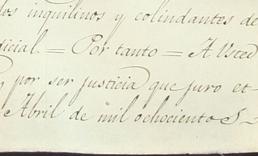 los inquilinos y colindantes de
dicial. = Por tanto = A Usted
, por ser justicia que juro et-
Abril de mil ochociento S-